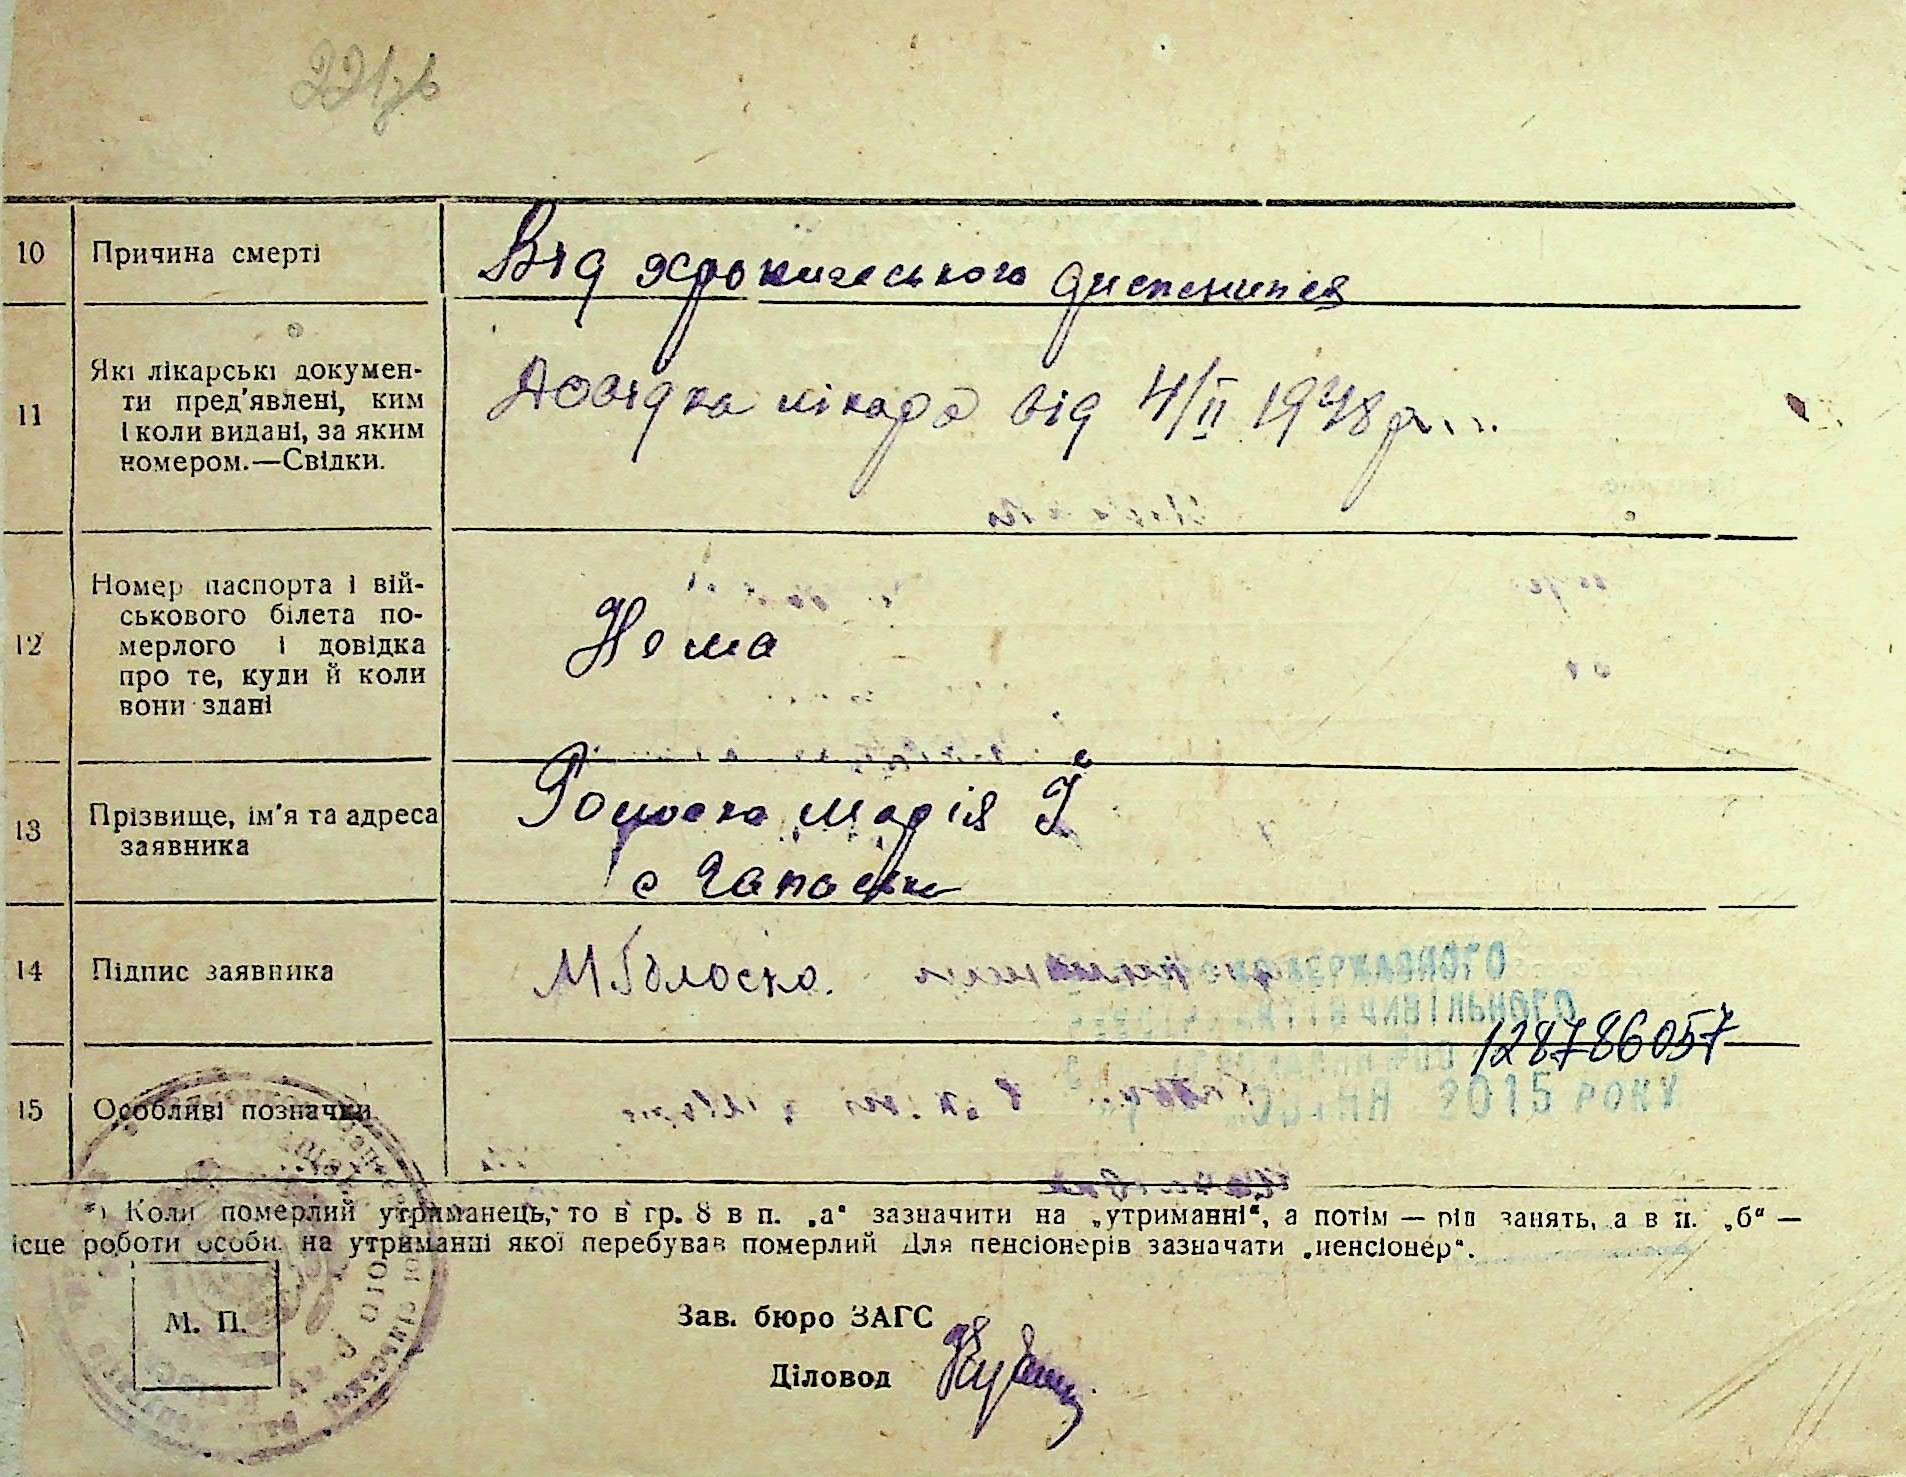 221зв
10 Причина смерті Від хронического диспепсия
11 Які лікарські докумен-
ти пред'явлені, ким
і коли видані, за яким
номером.—Свідки.
Довідка лікаря від 4/II 1948 р.
12 Номер паспорта і вій-
ськового білета по-
мерлого і довідка
про те, куди й коли
вони здані
Нема
13 Прізвище, ім'я та адреса
заявника
Марія
с
14 Підпис заявника
128786057
15 Особливі позначки
2015 РОКУ
*) Коли померлий утриманець, то в гр. 8 в п. „а“ зазначити на „утриманні“, а потім — рід занять, а в п. „б“ —
ісце роботи особи, на утриманні якої перебував померлий Для пенсіонерів зазначати „пенсіонер“.
М. П.
Зав. бюро ЗАГС
Діловод